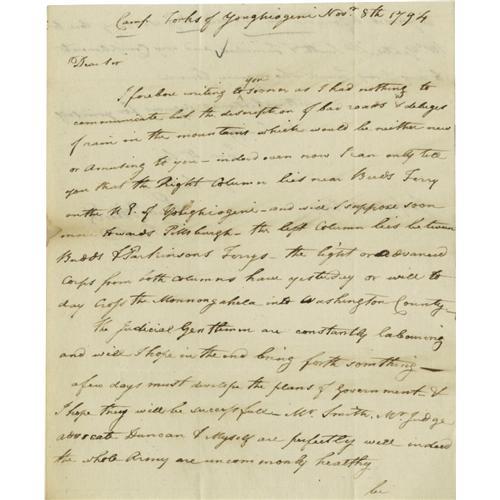 Camp Forks of Youghiogeni Novr. 8th 1794
Dear sir
I forebore writing to you sooner as I had nothing to
communicate but the description of bad roads & deluges
of rain in the mountains which would be neither new
or amusing to you – indeed even now I can only tell
you that the Right Column lies near Budds Ferry
on the of Yohghiogenie – and will I suppose soon
move towards Pittsburgh – the left Column lies between
Budds & Parkinsons Ferrys – the light or advanced
Corps from both columns have yesterday or will to
day cross the Monnongahela into Washington County –
the Judicial Gentlemen are constantly labouring
and will I hope in the end bring forth something –
a few days must develope the plans of Government &
I hope they will be successfull – Mr. Smith, Mr. Judge
advocate Duncan & Myself are perfectly well indeed
the whole Army are uncommonly healthy